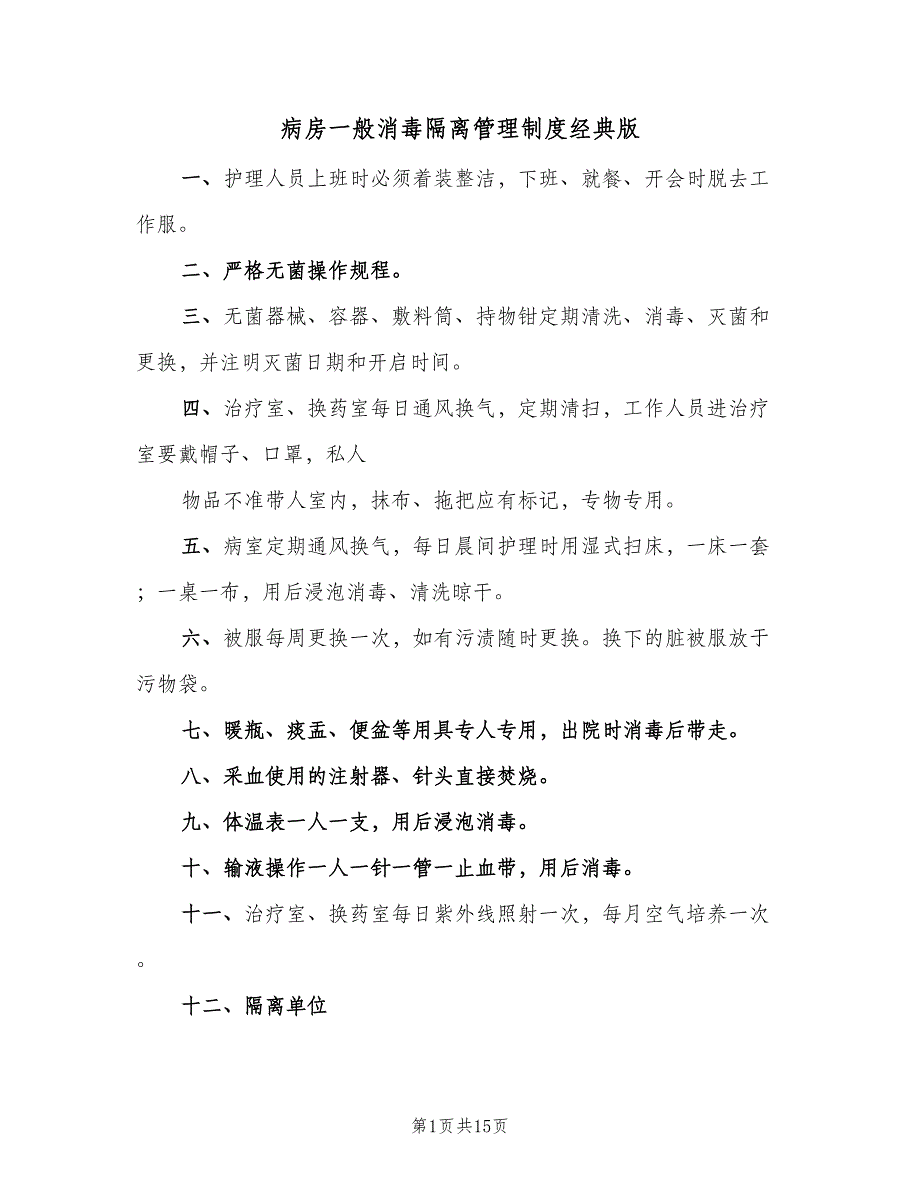 病房一般消毒隔离管理制度经典版
一、护理人员上班时必须着装整洁，下班、就餐、开会时脱去工
作服。
二、严格无菌操作规程。
三、无菌器械、容器、敷料筒、持物钳定期清洗、消毒、灭菌和
更换，并注明灭菌日期和开启时间。
四、治疗室、换药室每日通风换气，定期清扫，工作人员进治疗
室要戴帽子、口罩，私人
物品不准带人室内，抹布、拖把应有标记，专物专用。
五、病室定期通风换气，每日晨间护理时用湿式扫床，一床一套
；一桌一布，用后浸泡消毒、清洗晾干。
六、被服每周更换一次，如有污渍随时更换。换下的脏被服放于
污物袋。
七、暖瓶、痰盂、便盆等用具专人专用，出院时消毒后带走。
八、采血使用的注射器、针头直接焚烧。
九、体温表一人一支，用后浸泡消毒。
十、输液操作一人一针一管一止血带，用后消毒。
十一、治疗室、换药室每日紫外线照射一次，每月空气培养一次
。
十二、隔离单位
第1页共15页